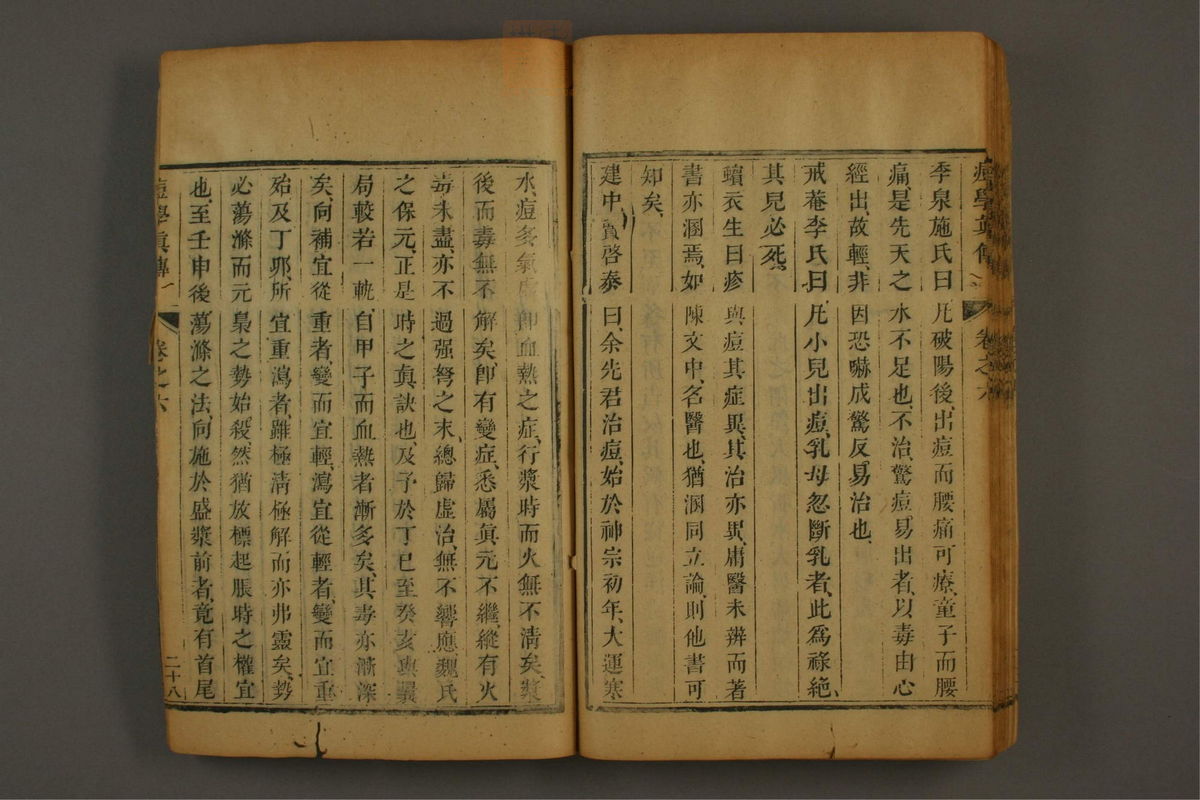 痘學眞傳 卷之六
李泉施氏曰凡破陽後出痘而腰痛可療童子而腰
痛是先天之水不足也不治驚痘易出者以毒由心
經出故輕非因恐嚇成驚反易治也
戒菴李氏曰凡小兒出痘乳母忽斷乳者此爲祿絕
其兒必死
蠙衣生曰疹與痘其症異其治亦異庸醫未辨而著
書亦溷焉如陳文中名醫也猶溷同立論則他書可
知矣
建中賀啓泰曰余先君治痘始於神宗初年大運寒
水痘多氣虛卽血熱之症行漿時而火無不清矣漿
後而毒無不解矣卽有變症悉屬眞元不繼縱有火
毒未盡亦不過强弩之末總歸虛治無不響應魏氏
之保元正是時之眞訣也及予於丁巳至癸亥與曩
局較若一軌自甲子而血熱者漸多矣其毒亦漸深
矣向補宜從重者變而宜輕瀉宜從輕者變而宜重
殆及丁卯所宜重瀉者雖極清極解而亦弗靈矣勢
必蕩滌而元梟之勢始殺然猶放標起脹時之權宜
也至壬申後蕩滌之法向施於盛漿前者竟有首尾
痘學眞傳 卷之六 二十八